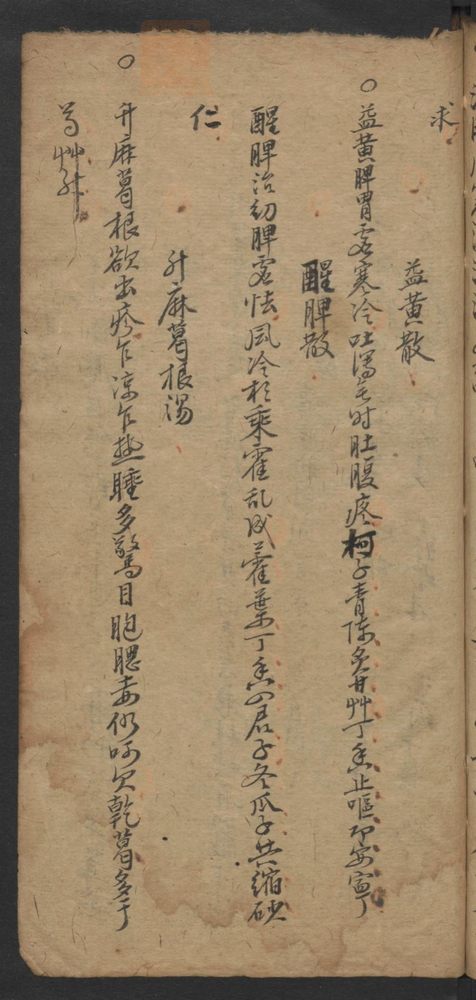 求
益黄散
○益黄脾胃虚寒冷吐瀉無时肚腹疼柯子青陳炙甘艸丁香止嘔即安寧
醒脾散
醒脾治幼脾虚怯風冷相乘霍乱成藿葉丁香四君子冬瓜子共縮砂
仁
升麻葛根湯
○升麻葛根欲出疹乍凉乍热睡多驚目胞腮赤仍呵欠乾葛
芍艸升